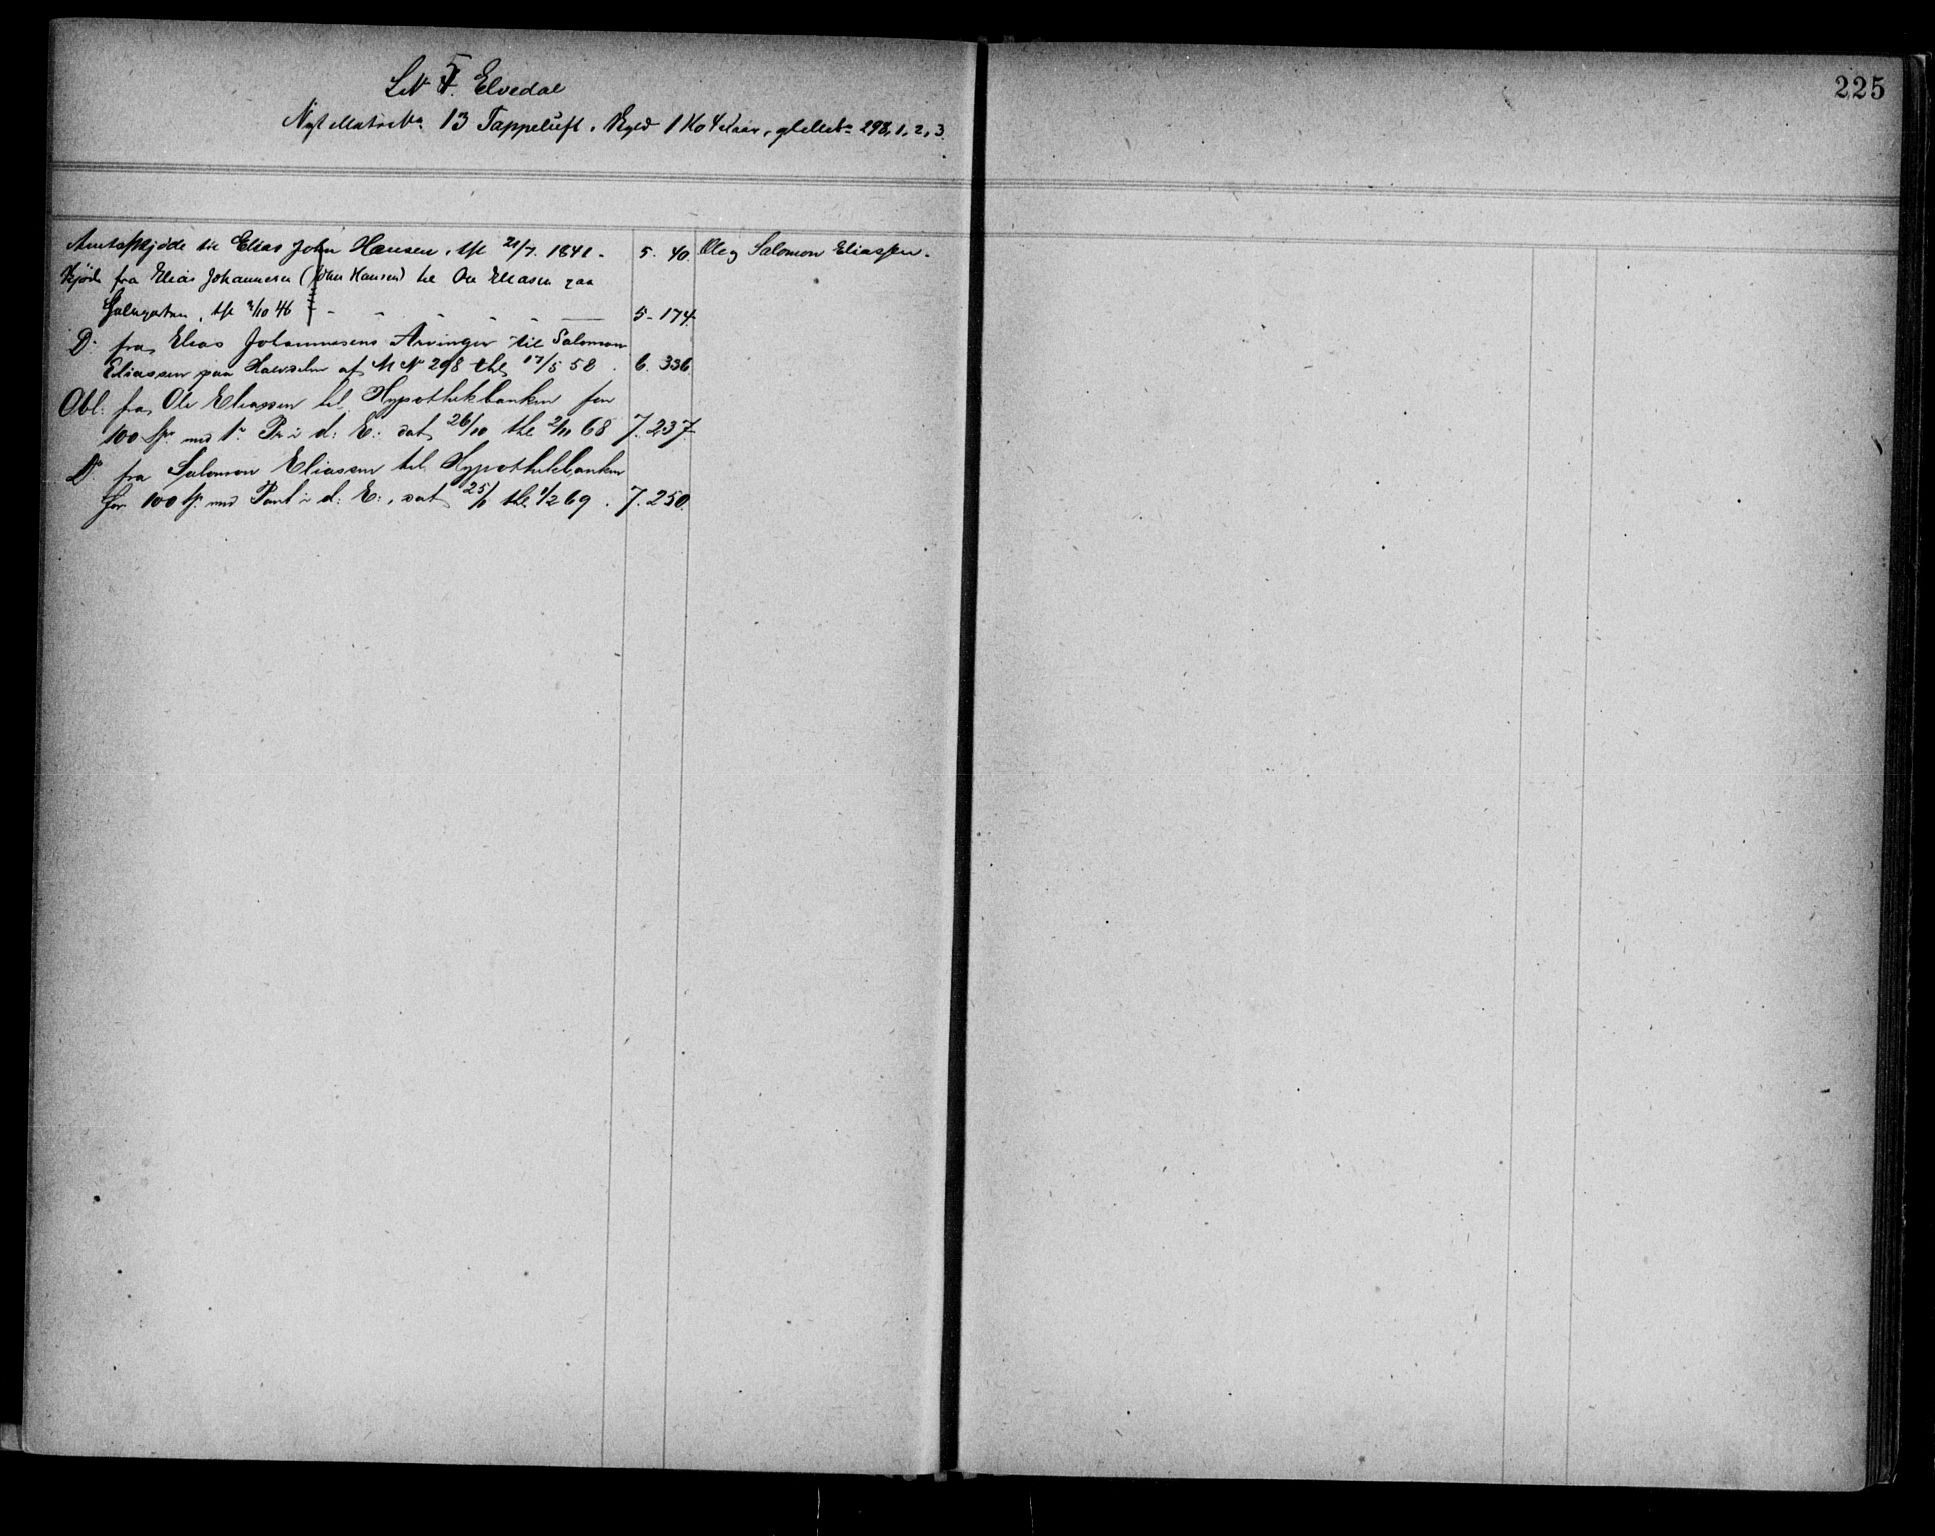 225
LN 5. Elvedal
Nyt Matr No 13 Tappeluft. Skyld 1 Ko 4 Kaar, gl Mt No 298, 1, 2, 3.
Amtsskjöde til Elias John Hansen, tfl 21/7. 1841. 5. 40. Ole og Salomon Eliassen.
Skjöde fra Elias Johannesen (John Hansen) til Ole Eliasen paa
, tfl 3/10 46 5-174
Do fra Elias Johannesens Arvinger til Salomon
Eliassen paa Halvdelen af M No 298 thl 17/5 58. 6. 336
Obl: fra Ole Eliassen til Hypothekbanken for
100 Sp. med 1ste Pr i d: E: dat 26/10 thl 2/11 68 7. 237
Do fra Salomon Eliassen til Hypothekbanken
for 100 Sp. med Pant i d: E:, dat 25/1 thl 1/2 69. 7. 250.